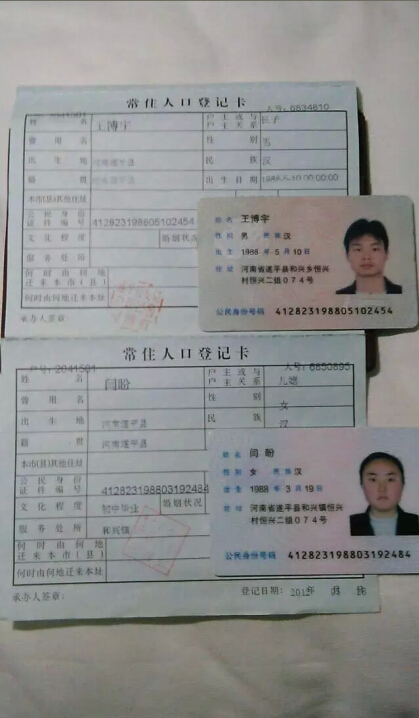 常住人口登记卡
户号: 2041501
人号: 6834810
姓名 王博宇 户主或与户主关系 长子
曾用名 性别 男
出生地 河南遂平县 民族 汉
籍贯 河南遂平县 出生日期
本市(县)其他住址
公民身份证件编号 412823198805102454
文化程度 婚姻状况
服务处所
何时由何地迁来本市(县)
何时由何地迁来本址
承办人签章:
姓名 王博宇
性别 男 民族 汉
出生 1988 年 5 月 10 日
住址 河南省遂平县和兴乡恒兴
村恒兴二组074号
公民身份号码 412823198805102454
常住人口登记卡
户号: 2041501
人号: 6850695
姓名 闫盼 户主或与户主关系 儿媳
曾用名 性别 女
出生地 河南遂平县 民族 汉
籍贯 河南遂平县
本市(县)其他住址
公民身份证件编号 412823198803192484
文化程度 初中毕业 婚姻状况
服务处所 和兴镇
何时由何地迁来本市(县)
何时由何地迁来本址
承办人签章: 登记日期:
姓名 闫盼
性别 女 民族 汉
出生 1988 年 3 月 19 日
住址 河南省遂平县和兴镇恒兴
村恒兴二组074号
公民身份号码 412823198803192484